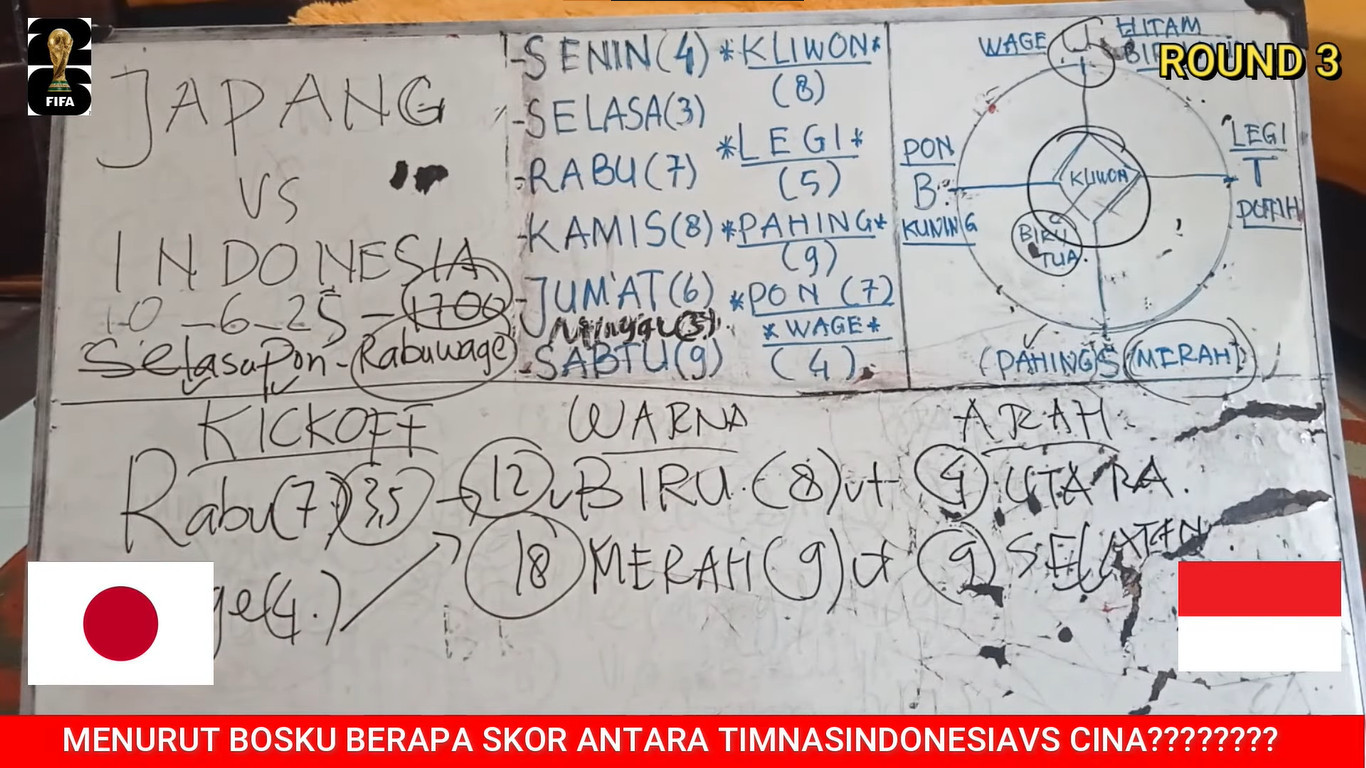 FIFA
ROUND 3
JAPANG
VS
INDONESIA
10-6-25-1700
SelasaPon-Rabuwage
-SENIN(4)
-SELASA(3)
-RABU(7)
-KAMIS(8)
-JUM'AT(6)
Minggu(5)
-SABTU(9)
*KLIWON*
(8)
*LEGI*
(5)
*PAHING*
(9)
*PON (7)
*WAGE*
(4)
WAGE U HITAM
PON
B
KUNING
KLIWON
BIRU
TUA
LEGI
T
PUTIH
(PAHING)S(MERAH)
KICKOFF WARNA ARAH
Rabu(7)(3,5) 12 BIRU (8) 4 UTARA.
ge(4.) 18 MERAH(9) 9 SELATAN
MENURUT BOSKU BERAPA SKOR ANTARA TIMNASINDONESIAVS CINA????????